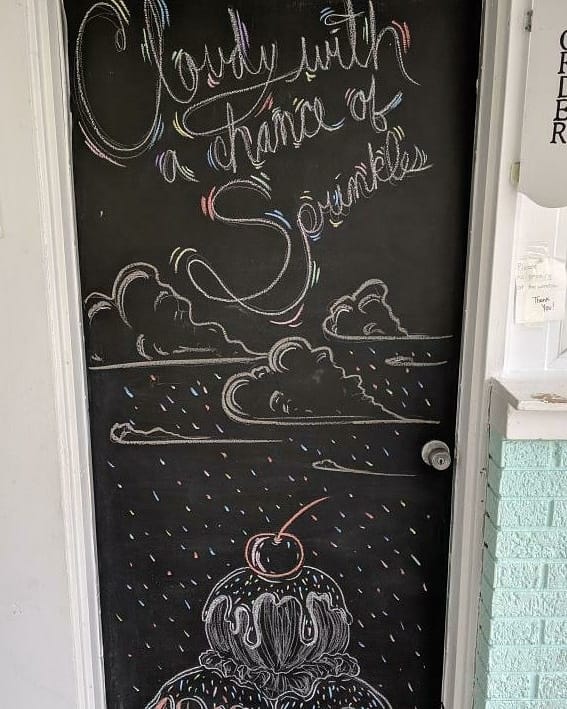 Cloudy with
a chance of
Sprinkles
ORDER
Please
Thank
You!